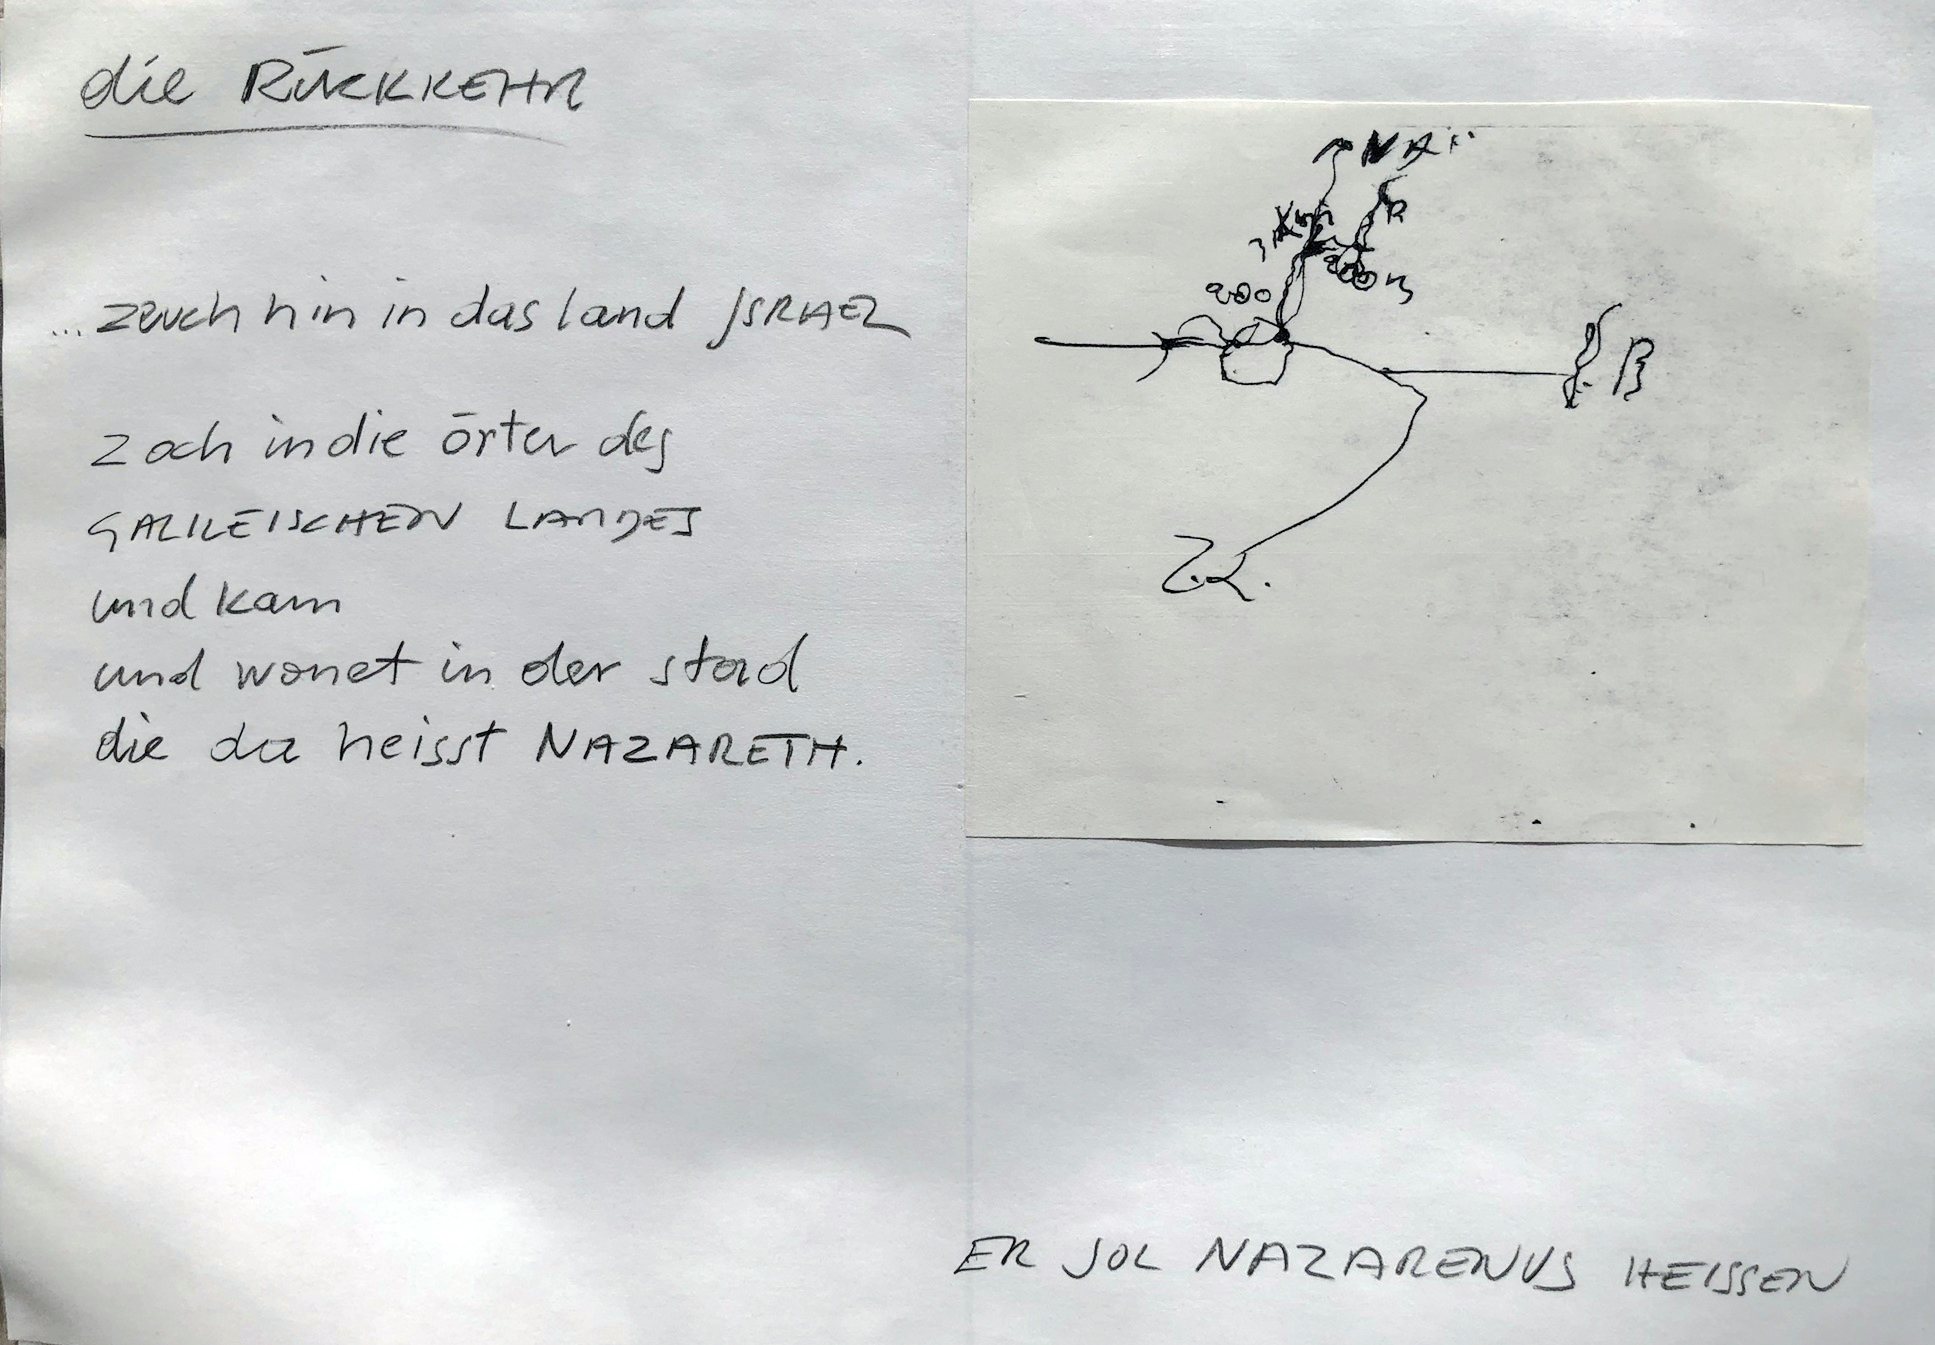 die RÜCKKEHR
... zeuch hin in das land ISRAEL
zoch in die örter des
GALILEISCHEN LANDES
und kam
und wonet in der stad
die da heisst NAZARETH.
900
R
B
Z.L.
ER SOL NAZARENUS HEISSEN